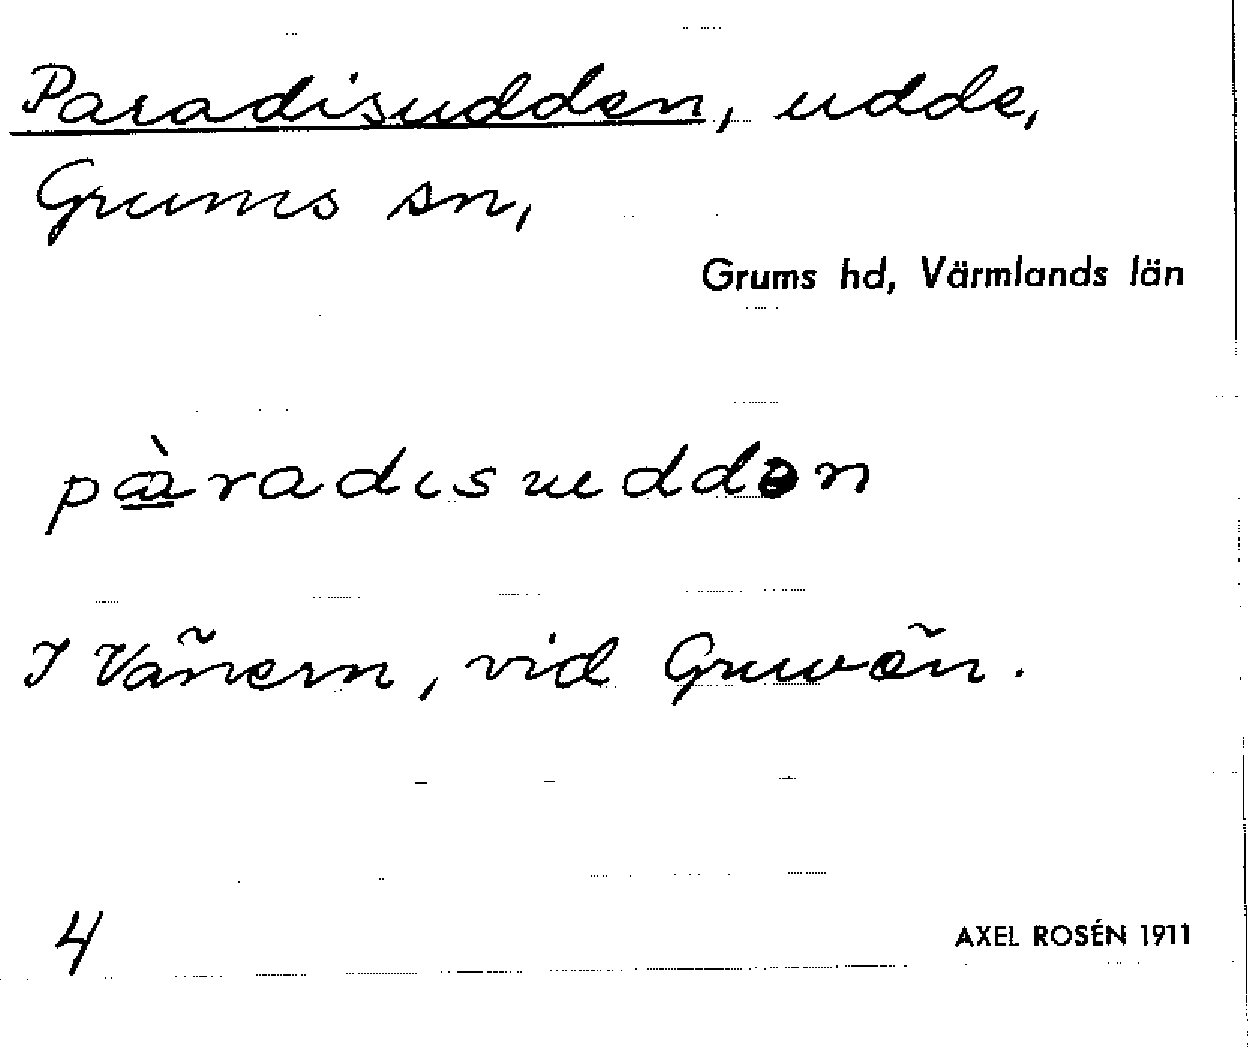 Paradisudden, udde,
Grums sn,
Grums hd, Värmlands län
pàradısuddən
I Vänern, vid Gruvön.
4
AXEL ROSÉN 1911